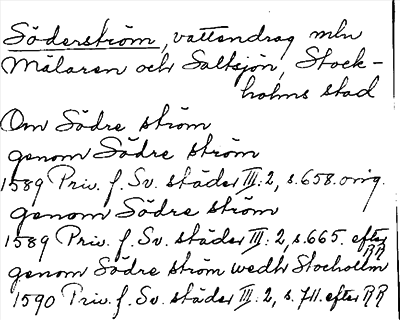 Söderström, vattendrag mln
Mälaren och Saltsjön, Stock-
holms stad
Om Södre ström
genom Södre ström
1589 Priv. f. Sv. städer III:2, s.658. orig.
genom Södre ström
1589 Priv. f. Sv. städer III:2, s.665. efter RR
genom Södre ström wedh Stocholm
1590 Priv. f. Sv. städer III:2, s. 711. efter RR